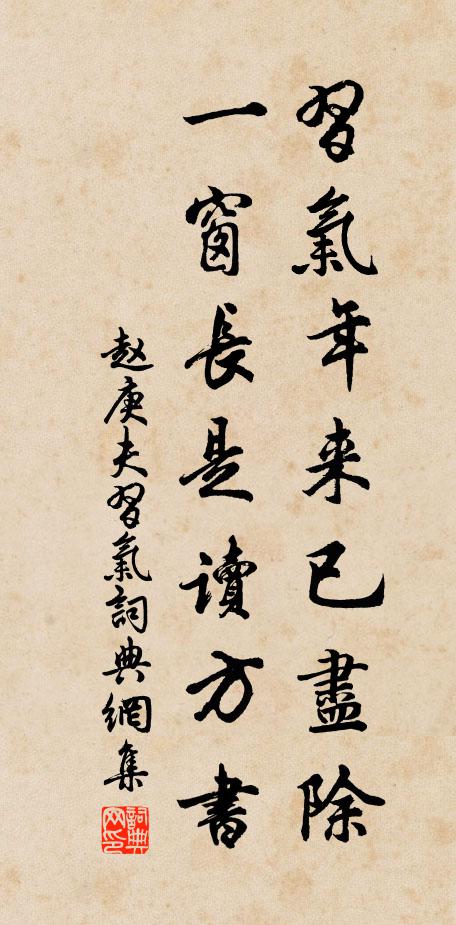 習氣年来已盡除
一窗長是讀方書
赵庚夫習氣詞典網集
詞典网印